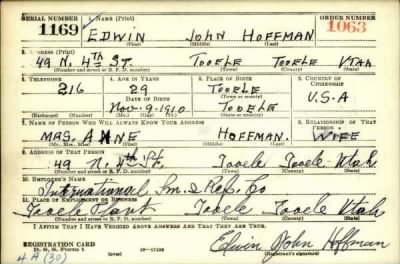 SERIAL NUMBER 1. NAME (Print) ORDER NUMBER
1169 EDWIN JOHN HOFFMAN 1063
(First) (Middle) (Last)
2. ADDRESS (Print)
49 N. 4TH ST. TOOELE TOOELE UTAH
(Number and street or R. F. D. number) (Town) (County) (State)
3. TELEPHONE 4. AGE IN YEARS 5. PLACE OF BIRTH 6. COUNTRY OF CITIZENSHIP
216 29 TOOELE
DATE OF BIRTH (Town or county)
Nov. 9. 1910 TOOELE U.S.A
(Exchange) (Number) (Mo.) (Day) (Yr.) (State or country)
7. NAME OF PERSON WHO WILL ALWAYS KNOW YOUR ADDRESS 8. RELATIONSHIP OF THAT PERSON
MRS. HOFFMAN. WIFE
(Mr., Mrs., Miss) (First) (Middle) (Last)
9. ADDRESS OF THAT PERSON
49 N. 4th St. Tooele Tooele Utah
(Number and street or R. F. D. number) (Town) (County) (State)
10. EMPLOYER'S NAME
International Sm. & Ref. Co
11. PLACE OF EMPLOYMENT OR BUSINESS
Tooele Plant Tooele Tooele Utah
(Number and street or R. F. D. number) (Town) (County) (State)
I AFFIRM THAT I HAVE VERIFIED ABOVE ANSWERS AND THAT THEY ARE TRUE.
REGISTRATION CARD
D. S. S. FORM 1 (over) 16—17105 Edwin John Hoffman
(Registrant's signature)
4 A (30)